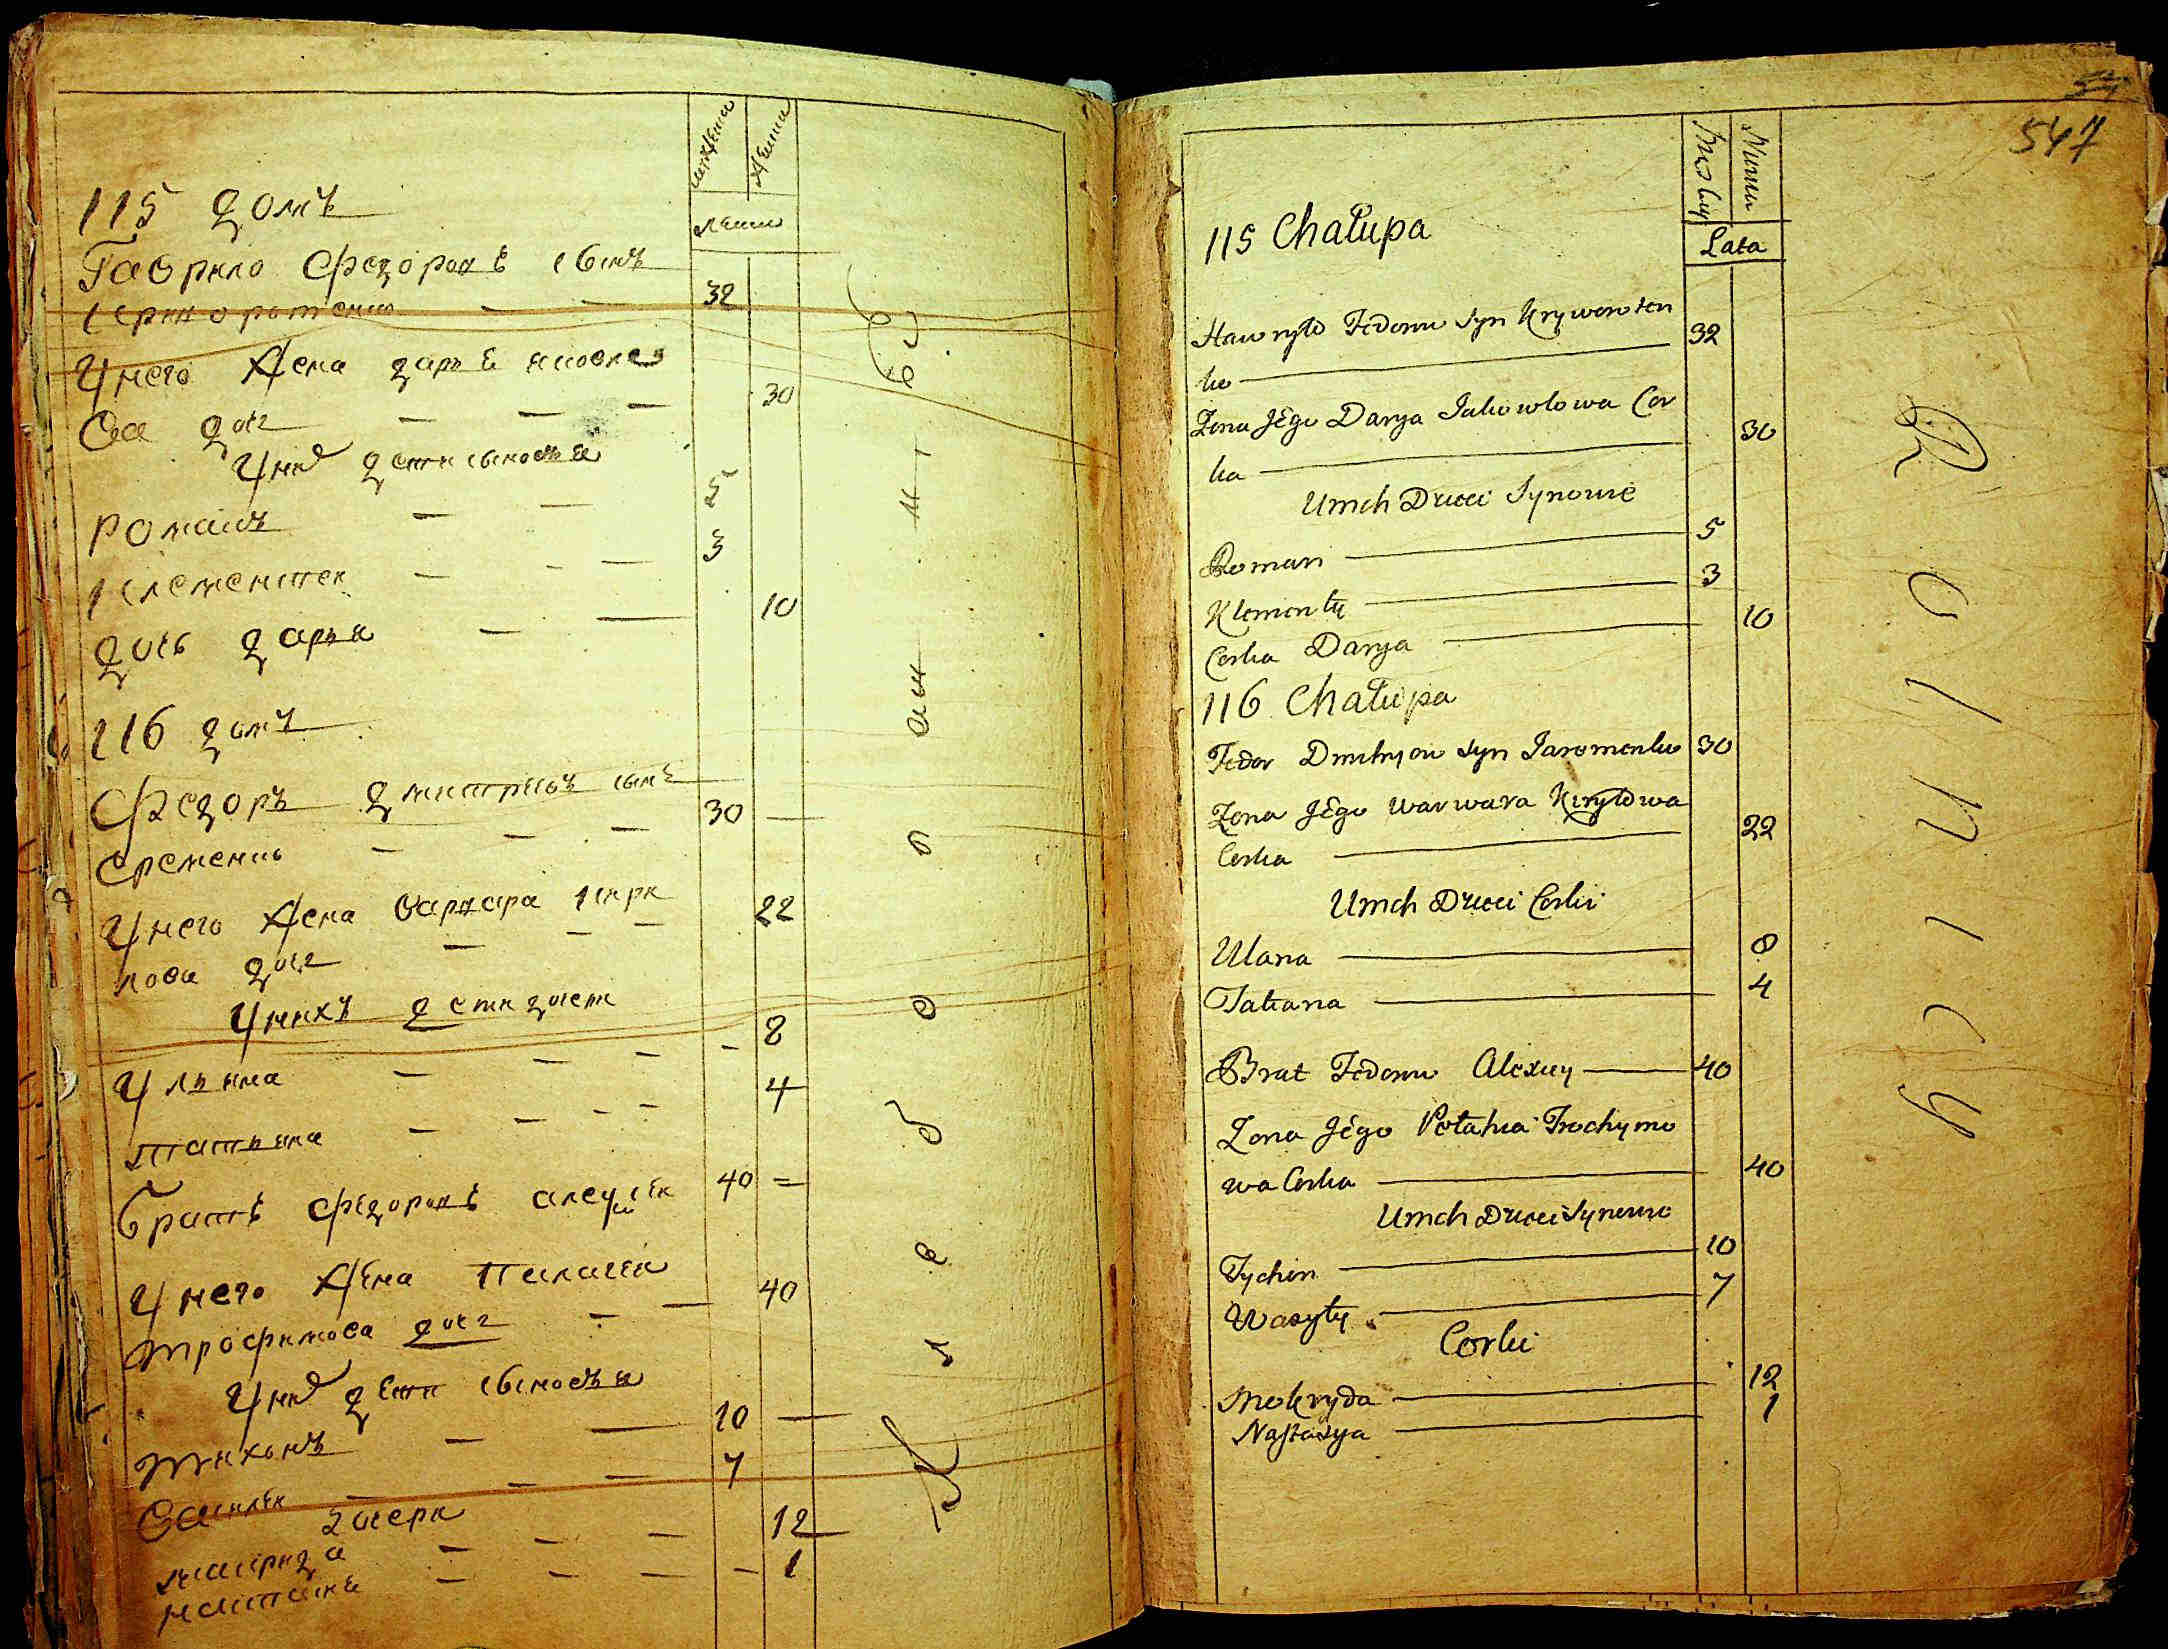 115 домъ
Гаврило Федоровъ сынъ
32
У него жена дарья яковле
ва доч
30
У них дети сыновья
романъ
5
клементей
3
дочь дарья
10
116 домъ
Федоръ дмитриевъ сынъ
еременко
30
У него жена варвара кири
лова доч
22
У нихъ дети
ульяна
8
татьяна
4
братъ федоровъ алексей
40
У него жена пелагея
трофимова доч
40
У них дети сыновья
тихонъ
10
василей
7
дочери
12
1
547
115 Chałupa
Lata
Hawryło Fedorow Syn Kryworoten
ko
32
Żona Jego Darya Jakowlowa Cor
ka
30
U nich Dzieci Synowie
Roman
5
Klementy
3
Corka Darya
10
116 Chałupa
Fedor Dmitryow Syn Jaromenko
30
Żona Jego Warwara Kiryłowa
Corka
22
U nich Dzieci Corki
Ulana
8
Tatiana
4
Brat Fedorow Alexiey
40
Żona Jego Pelahia Trochymo
wa Corka
40
U nich Dzieci Synowie
Tychon
10
Wasyly
7
Corki
Mokryda
12
Nastasya
1
Rolnicy